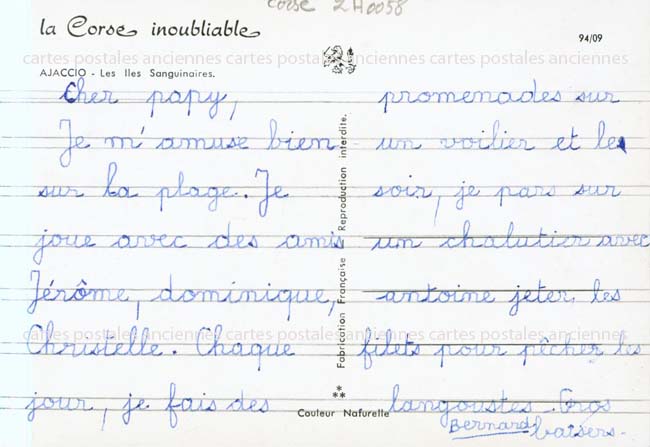 Corse 2A0058
la Corse inoubliable
94/09
cartes postales anciennes cartes postales anciennes cartes postales anciennes
AJACCIO - Les Iles Sanguinaires.
Cher papy,
Je m'amuse bien
sur la plage. Je
joue avec des amis
Jérôme, dominique,
Christelle. Chaque
jour, je fais des
promenades sur
un voilier et le
soir, je pars sur
un chalutier avec
antoine jeter les
filets pour pêcher les
langoustes. Gros
baisers.
Bernard
cartes postales anciennes cartes postales anciennes cartes postales anciennes
Fabrication Française Reproduction interdite.
Couleur Naturelle